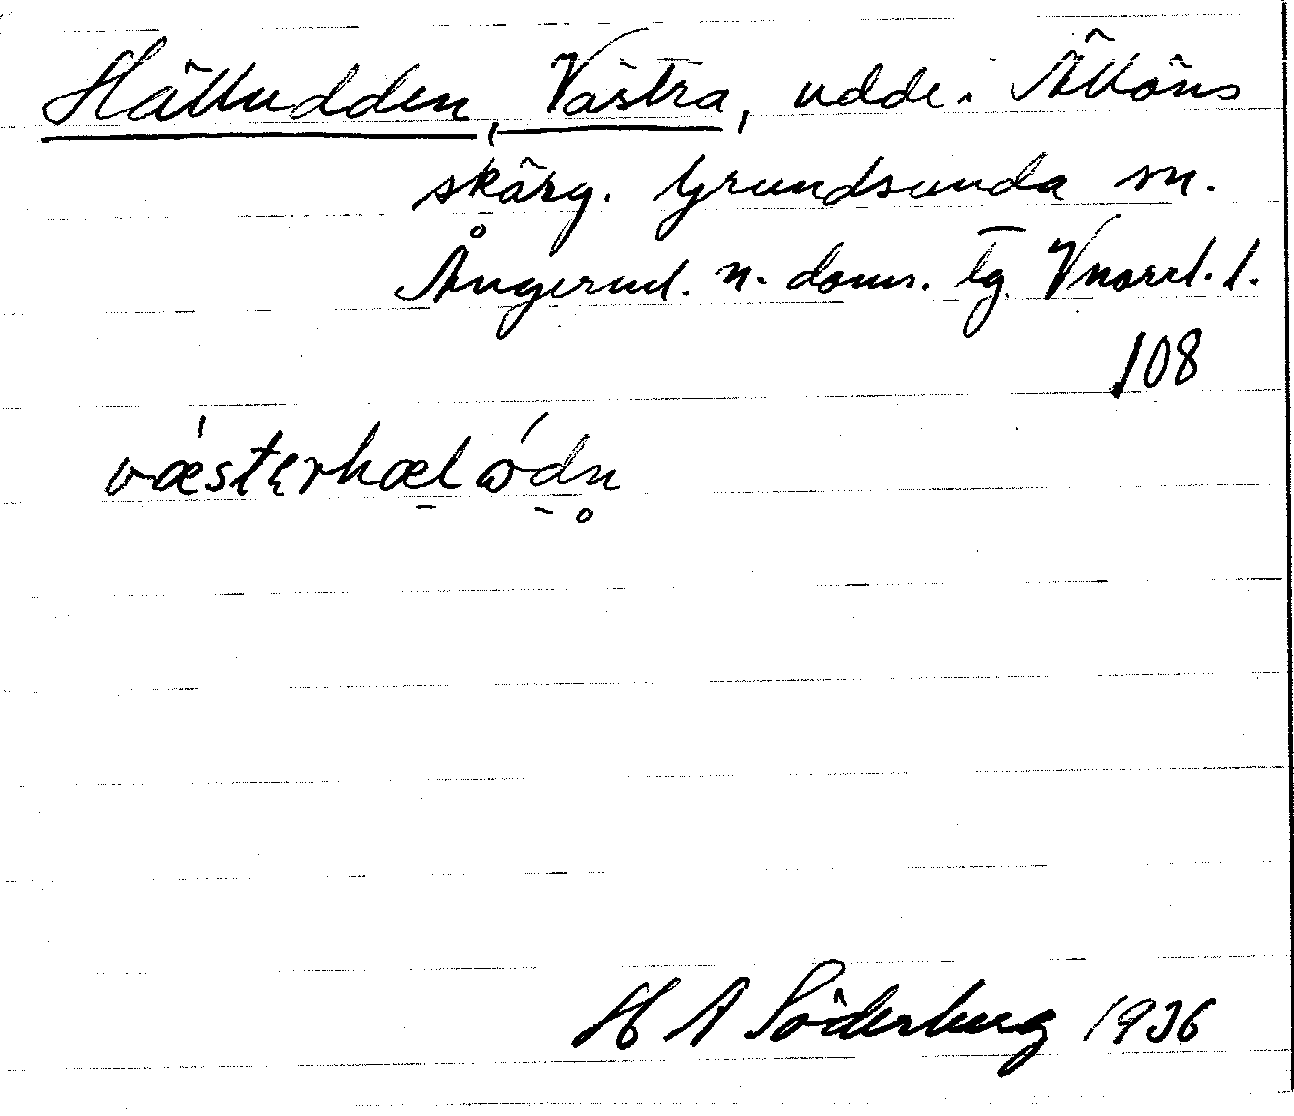 Hälludden, Västra, udde i Ällöns
skärg. Grundsunda sn.
Ångerml. n. doms. tg. Vnorrl. l.
108
væ̍stərhæl ώdn̥
H A Söderberg 1936